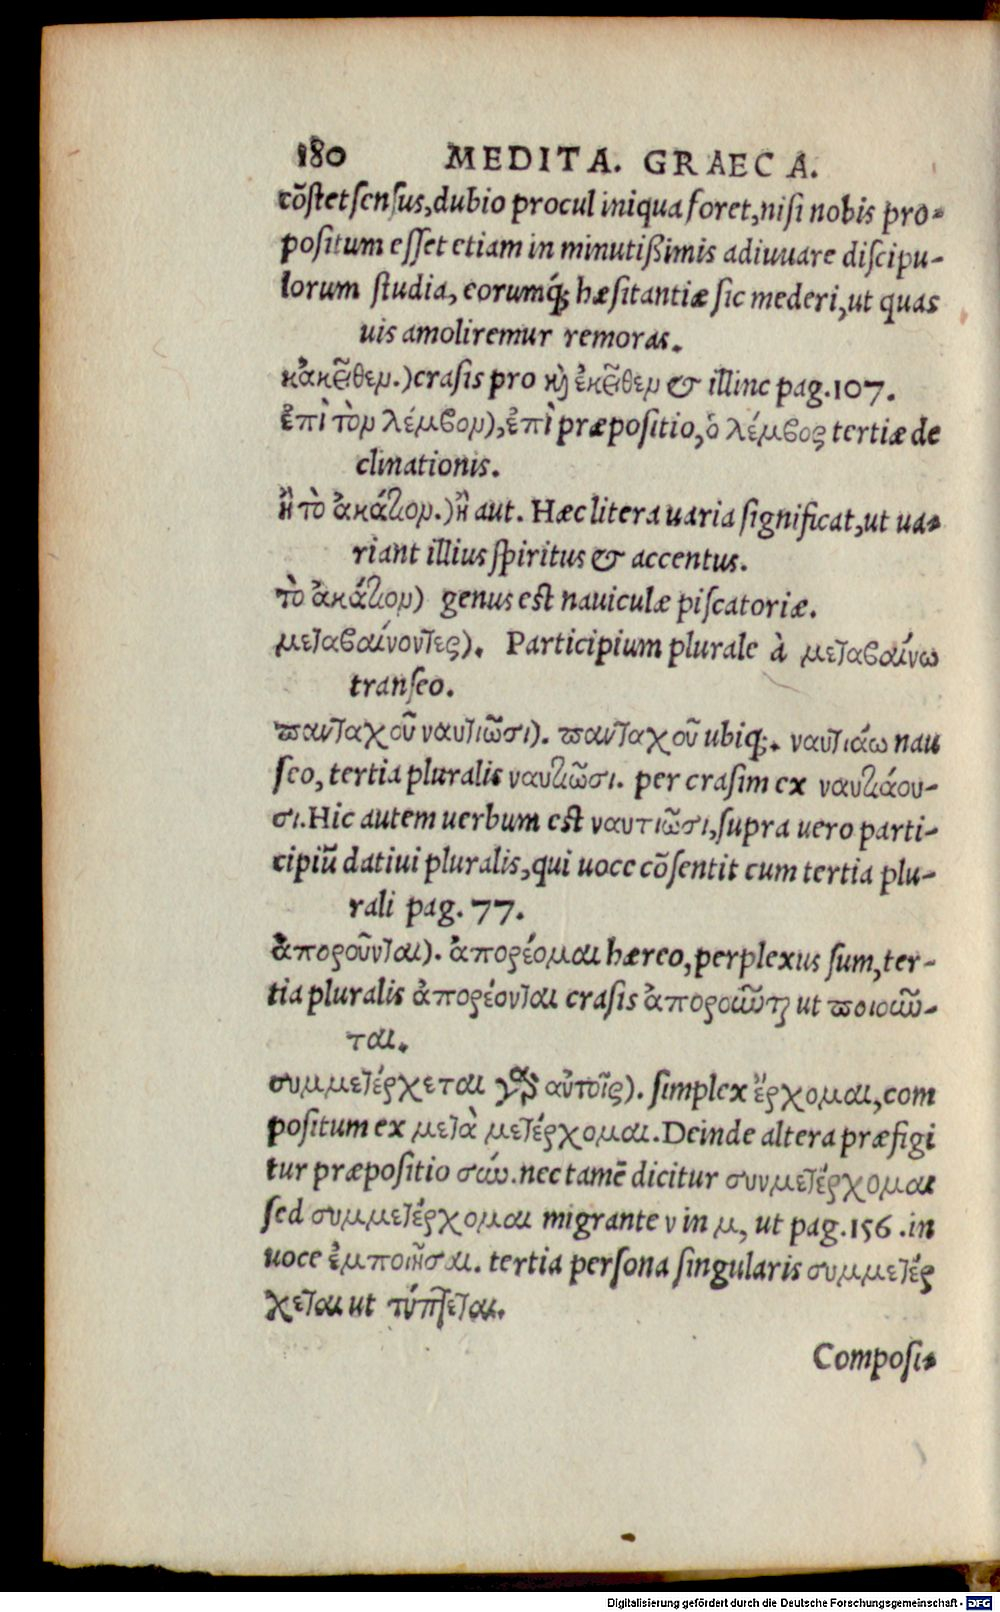 180 MEDITA. GRAECA.
cõstet sensus, dubio procul iniqua foret, nisi nobis pro-
positum esset etiam in minutißimis adiuuare discipu-
lorum studia, eorumq́; hæsitantiæ sic mederi, ut quas
uis amoliremur remoras.
κἀκεῖθεν.) crasis pro κὶ ἐκεῖθεν & illinc pag. 107.
ἐπὶ τὸν λέμβον), ἐπὶ præpositio, ὁ λέμβος tertiæ de
clinationis.
ἢ τὸ ἀκάτιον.) ἢ aut. Hæc litera uaria significat, ut ua-
riant illius spiritus & accentus.
τὸ ἀκάτιον) genus est nauiculæ piscatoriæ.
μεταβαίνοντες). Participium plurale à μεταβαίνω
transeo.
πανταχοῦ ναυτιῶσι). πανταχοῦ ubiq;. ναυτιάω nau
seo, tertia pluralis ναυτιῶσι. per crasim ex ναυτιάου-
σι. Hic autem uerbum est ναυτιῶσι, supra uero parti-
cipiũ datiui pluralis, qui uoce cõsentit cum tertia plu-
rali pag. 77.
ἀποροῦνται). ἀπορέομαι hæreo, perplexus sum, ter-
tia pluralis ἀπορέονται crasis ἀποροῦνται ut ποιοῦν-
ται.
συμμετέρχεται γὰρ αὐτοῖς). simplex ἔρχομαι, com
positum ex μετὰ μετέρχομαι. Deinde altera præfigi
tur præpositio σύν. nec tamẽ dicitur συνμετέρχομαι
sed συμμετέρχομαι migrante ν in μ, ut pag. 156. in
uoce ἐμποιῆσαι. tertia persona singularis συμμετέρ
χεται ut τύπτεται.
Composi-
Digitalisierung gefördert durch die Deutsche Forschungsgemeinschaft - DFG